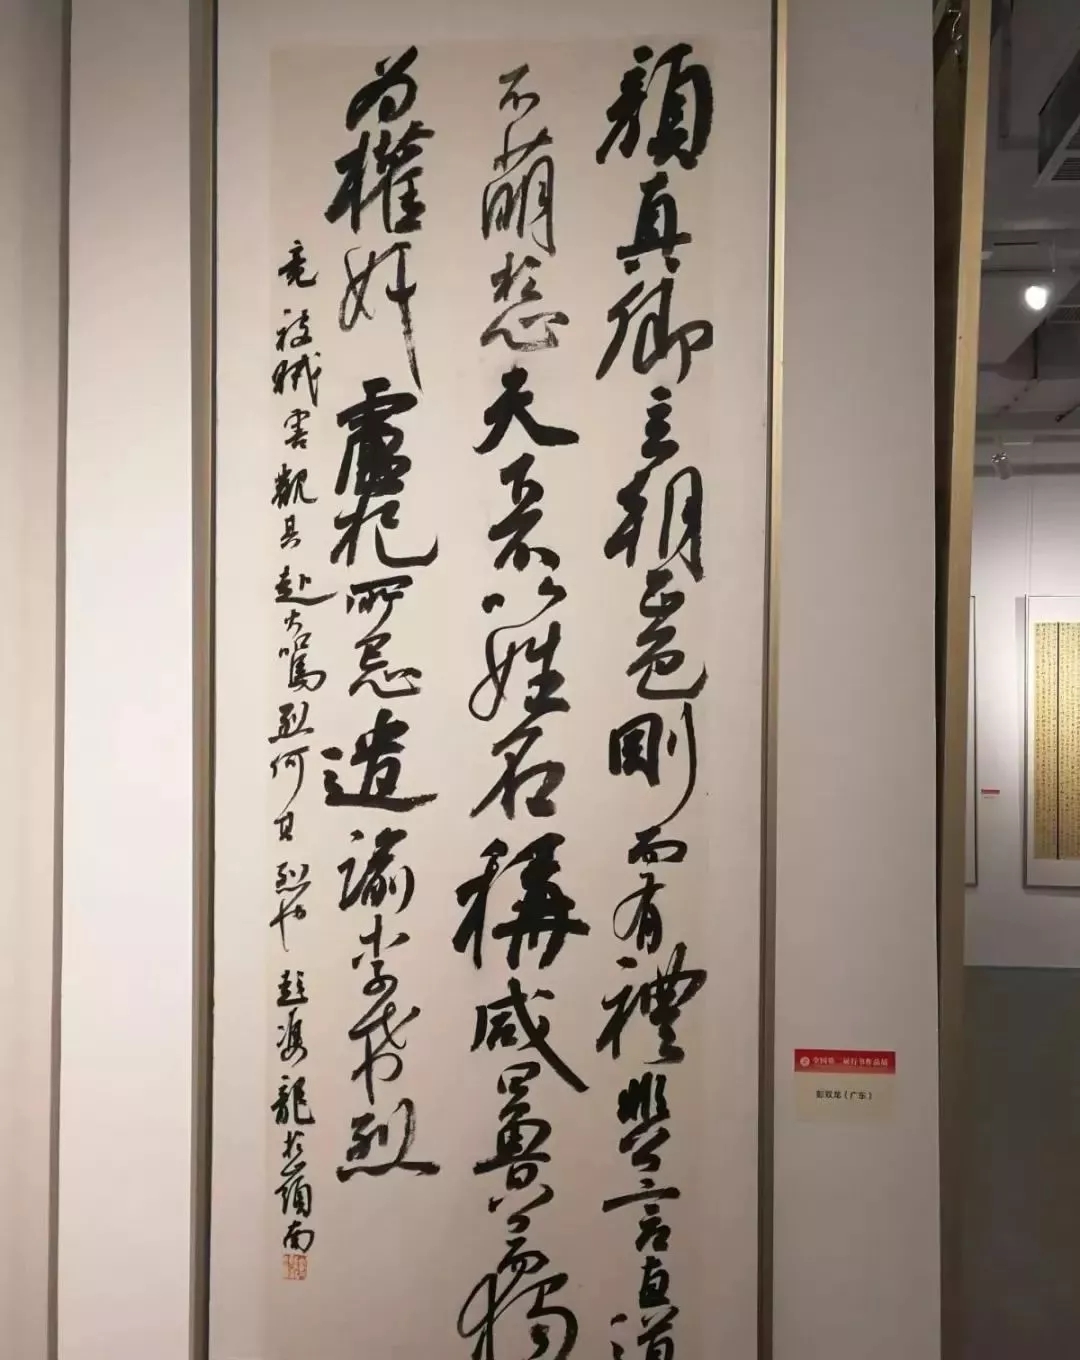 顔真卿立朝正色剛而有禮非公言直道
不萌於心天下不以姓名稱咸曰魯公而獨
為權奸盧杞所忌遣諭李希烈
竟被賊害觀其赴火駡烈何其烈也 彭雙龍於嶺南
全国第二届行书作品展
彭双龙（广东）